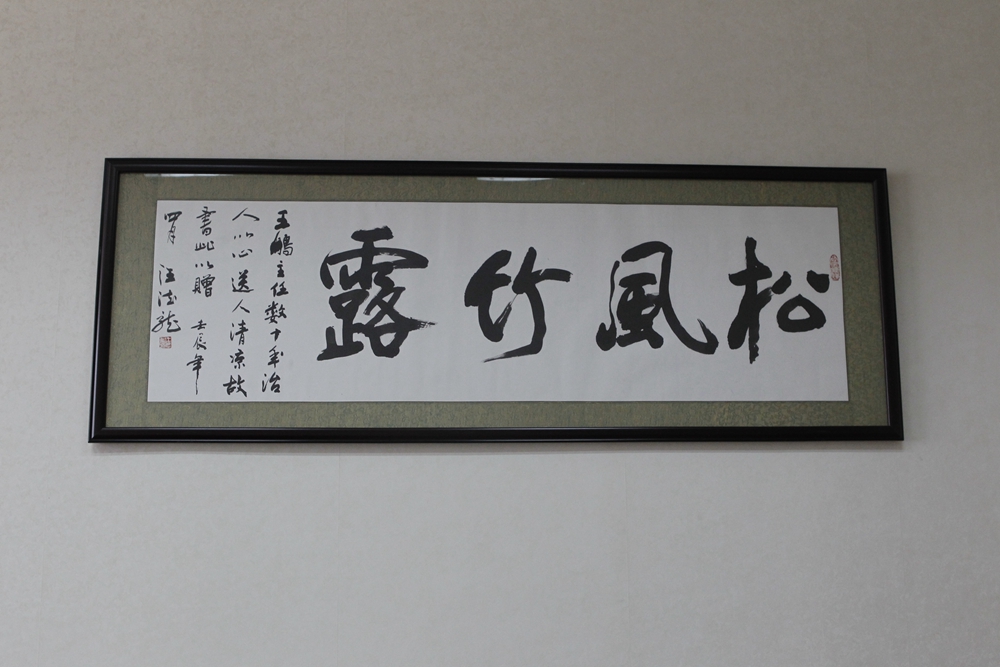 松風竹露
王鵬主任数十年治
人以心送人清凉故
書此以贈 壬辰年
四月 汪德龍